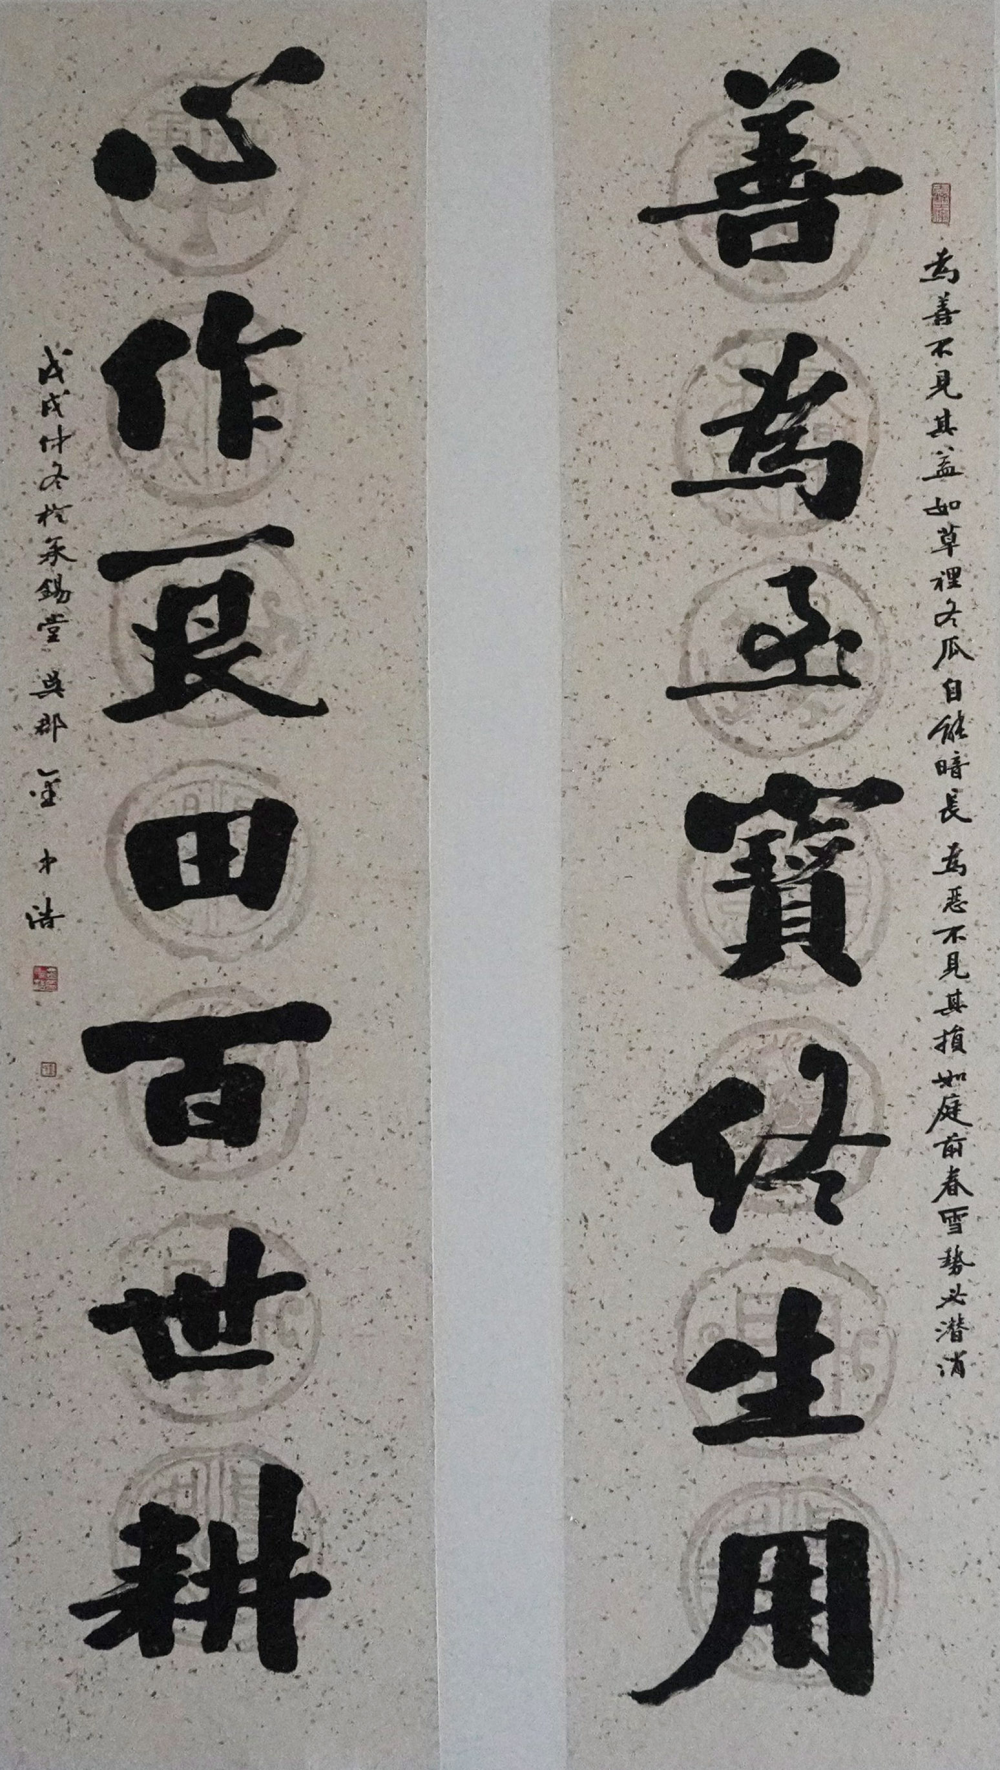 為善不見其益如草裡冬瓜自能暗長為惡不見其損如庭前春雪勢必潜消
善為至寶終生用
心作良田百世耕
戊戌仲冬於承錫堂吳郡金中浩